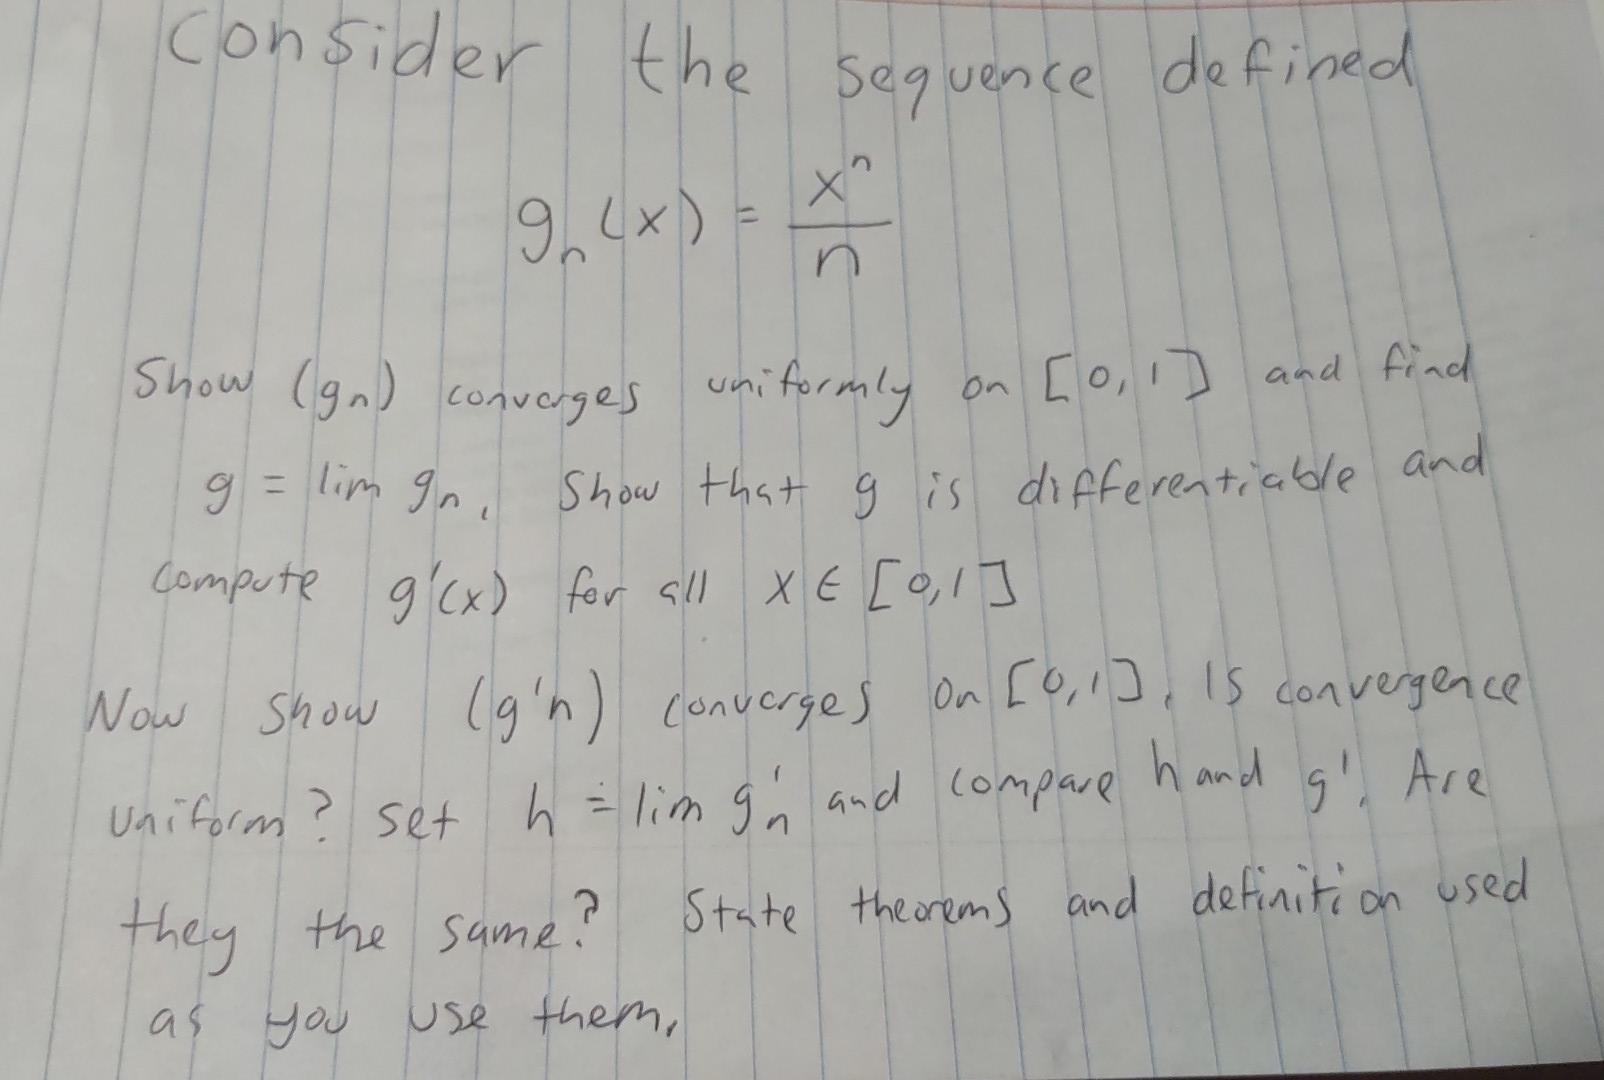 Consider the sequence defined
gₙ(x) = xⁿ/n
Show (gₙ) converges uniformly on [0,1] and find
g = lim gₙ. Show that g is differentiable and
compute g'(x) for all x ∈ [0,1]
Now show (g'n) converges on [0,1]. Is convergence
uniform? set h = lim g'ₙ and compare h and g'. Are
they the same? State theorems and definition used
as you use them.